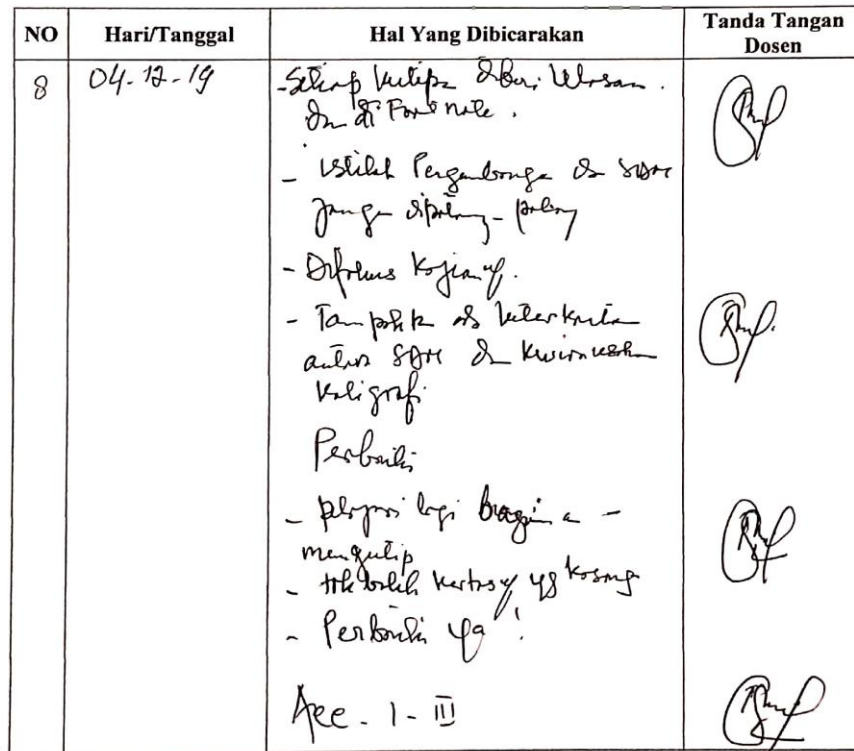 NO Hari/Tanggal Hal Yang Dibicarakan Tanda Tangan Dosen
8 04-12-19 - Setiap kutipa diberi Ulasan.
dn di Foot note.
- istilah Pengembanga dr SDM
janga dipotong - potong
- Difokus Kajian
- Tampak
antara SDM dn Kewirausaha
Kaligrafi
Perbaiki
- pelajari lagi bagima -
mengutip
- tdk boleh kertas yg kosong
- Perbaiki ya !
Acc - I - III